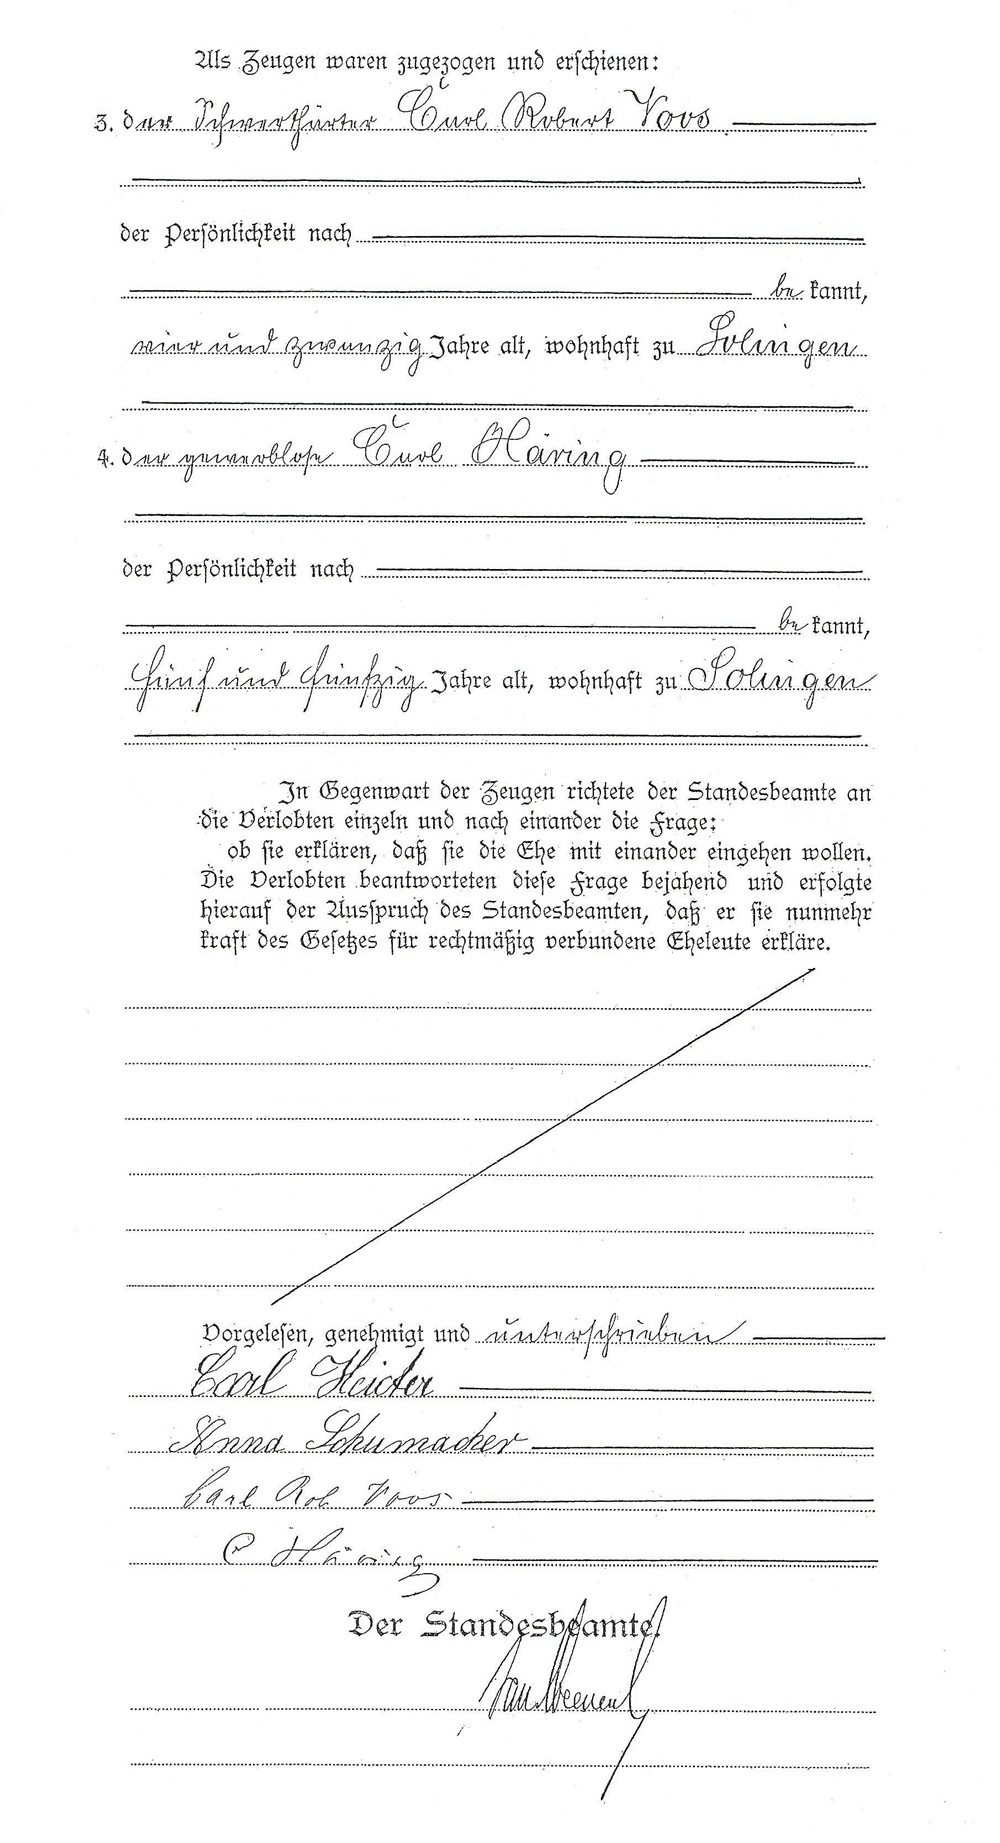 Als Zeugen waren zugezogen und erschienen:
3. der Schwerthärter Carl Robert Voos
der Persönlichkeit nach
be kannt,
vier und zwanzig Jahre alt, wohnhaft zu Solingen
4. der gewerblose Carl Häring
der Persönlichkeit nach
be kannt,
fünf und fünfzig Jahre alt, wohnhaft zu Solingen
In Gegenwart der Zeugen richtete der Standesbeamte an
die Verlobten einzeln und nach einander die Frage:
ob sie erklären, daß sie die Ehe mit einander eingehen wollen.
Die Verlobten beantworteten diese Frage bejahend und erfolgte
hierauf der Ausspruch des Standesbeamten, daß er sie nunmehr
kraft des Gesetzes für rechtmäßig verbundene Eheleute erkläre.
Vorgelesen, genehmigt und unterschrieben
Carl Heider
Anna Schumacher
Carl Rob Voos
C Häring
Der Standesbeamte.